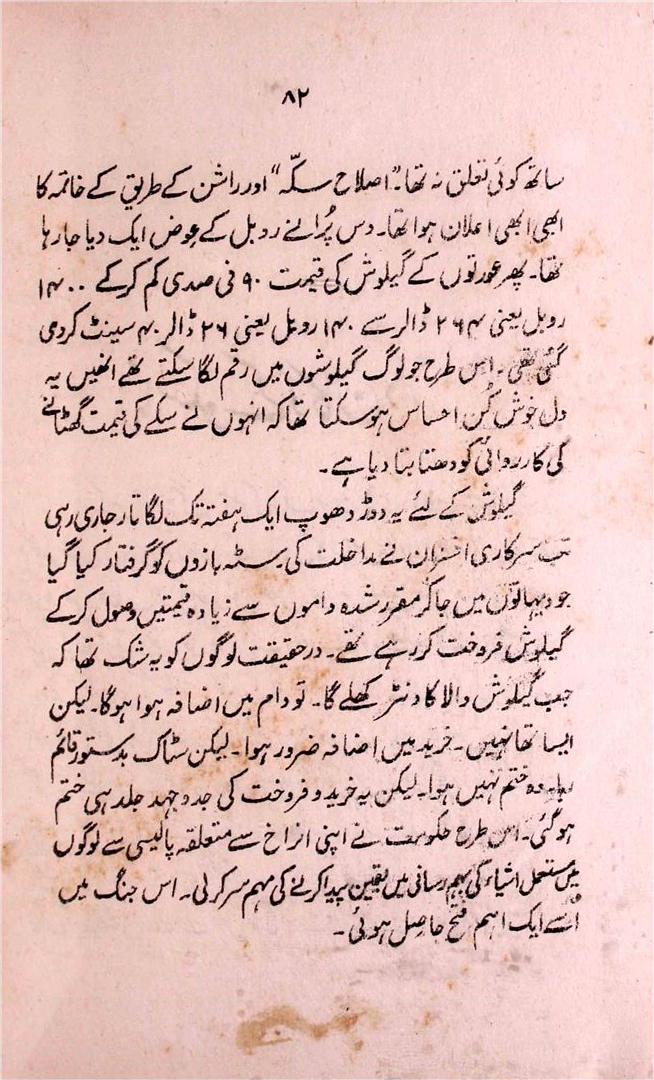 ۸۲
ساتھ کوئی تعلق نہ تھا۔ "اصلاح سکہّ" اور راشن کے طریق کے خاتمہ کا
ابھی ابھی اعلان ہوا تھا۔ دس پُرانے روبل کے عوض ایک دیا جا رہا
تھا۔ پھر عورتوں کے گیلوش کی قیمت ۹۰ فی صدی کم کرکے ۱۴۰۰
روبل یعنی ۲۶۴ ڈالر سے ۱۴۰ روبل یعنی ۲۶ ڈالر ۴۰ سینٹ کردی
گئی تھی۔ اس طرح جو لوگ گیلوشوں میں رقم لگا سکتے تھے انھیں یہ
دل خوش کُن احساس ہوسکتا تھا کہ انہوں نے سکے کی قیمت گھٹانے
کی کارروائی کو دھتا بتا دیا ہے۔
گیلوش کے لئے یہ دوڑ دھوپ ایک ہفتہ تک لگا تار جاری رہی
تب سرکاری افسران نے مداخلت کی۔ سٹہ بازوں کو گرفتار کیا گیا
جو دیہاتوں میں جاکر مقرر شدہ داموں سے زیادہ قیمتیں وصول کرکے
گیلوش فروخت کر رہے تھے۔ درحقیقت لوگوں کو یہ شک تھا کہ
جب گیلوش والا کاونٹر کھلے گا۔ تو دام میں اضافہ ہوا ہوگا۔ لیکن
ایسا تھا نہیں۔ خرید میں اضافہ ضرور ہوا۔ لیکن سٹاک بدستور قائم
رہا۔ وہ ختم نہیں ہوا۔ لیکن یہ خرید و فروخت کی جدوجہد جلد ہی ختم
ہوگئی۔ اس طرح حکومت نے اپنی انراخ سے متعلقہ پالیسی سے لوگوں
میں مستعمل اشیاء کی بہم رسانی میں یقین پیدا کرنے کی مہم سر کرلی۔ اس جنگ میں
اُسے ایک اہم فتح حاصل ہوئی۔